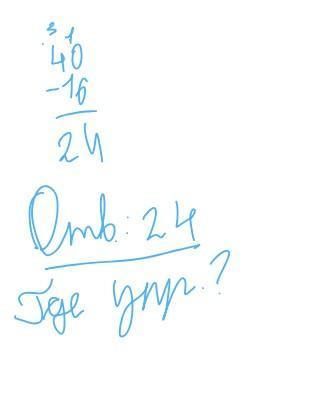 3 1
40
-16
24
Отв.: 24
Где упр.?